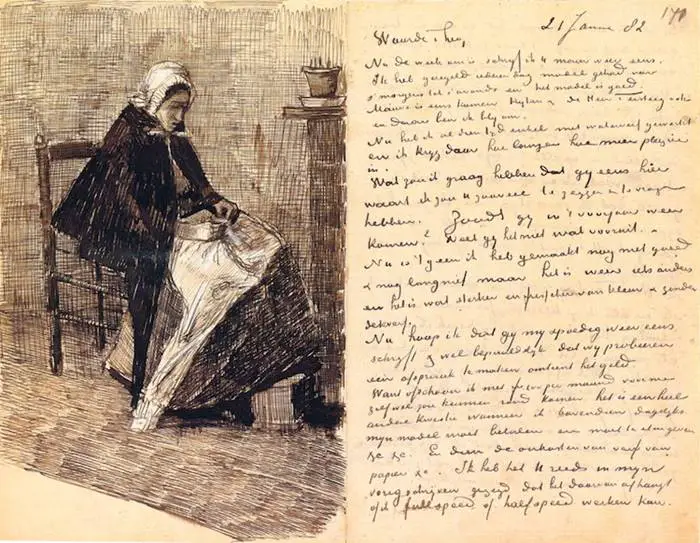 21 Januar 82
171
Waarde Theo,
Nu de week om is schrijf ik U maar weer eens.
Ik heb geregeld iederen dag model gehad van
's morgens tot 's avonds en het model is goed.
Mauve is eens komen kijken & de Heer
en daar ben ik blij om.
Nu heb ik al dien tijd enkel met waterverf gewerkt
en ik krijg daar hoe langer hoe meer plezier
in.
Wat zou ik graag hebben dat gij eens hier
waart ik zou U zooveel te zeggen & te vragen
hebben. Zoudt gij in 't voorjaar weer
komen? Weet gij het niet wat vooruit.
Nu is 't geen ik heb gemaakt nog niet goed
& nog lang niet maar het is weer iets anders
en het is wat sterker en frisscher van kleur & zonder
dekverf.
Nu hoop ik dat gij mij spoedig weer eens
schrijft & wel bepaaldelijk dat wij probeeren
een afspraak te maken omtrent het geld.
Want ofschoon ik met per maand voor me
zelf wel zou kunnen rond komen het is een heel
andere kwestie wanneer ik bovendien dagelijks
mijn model moet betalen en moet te eten geven
En dan de onkosten van verf van
papier &c. Ik heb het U reeds in mijn
vorig schrijven gezegd dat het daarvan afhangt
of ik full speed of half speed werken kan.